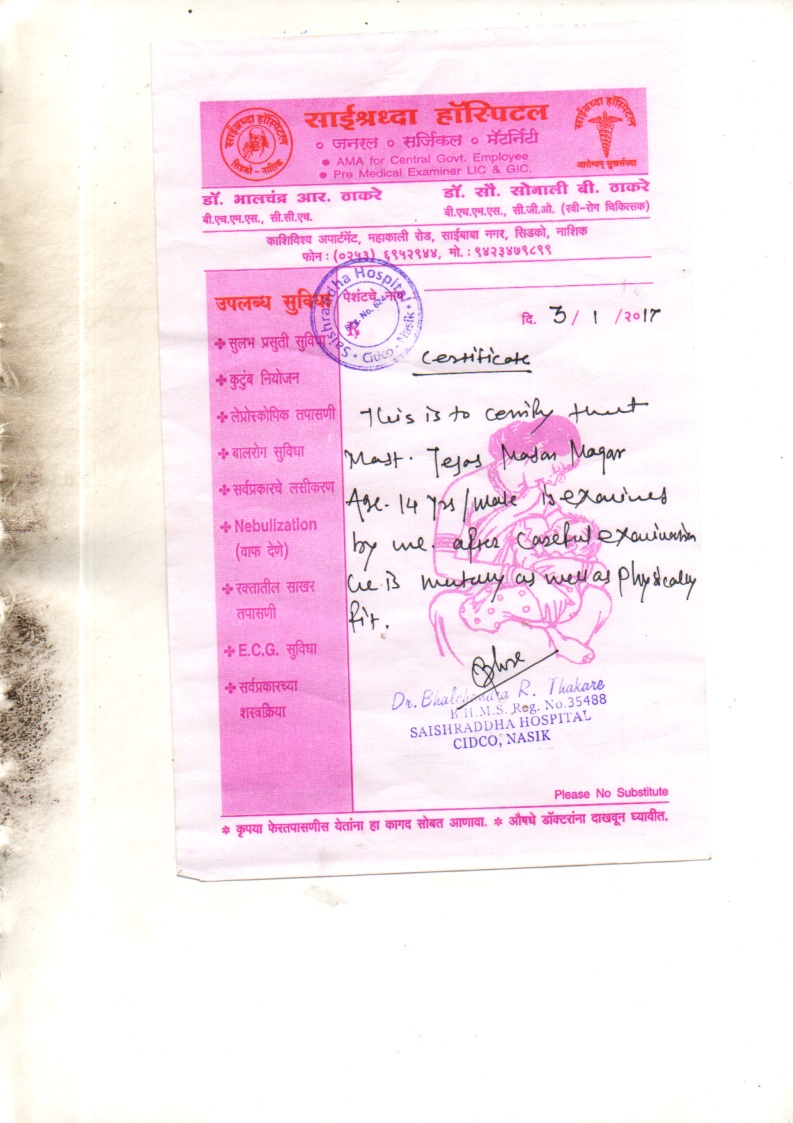 साईश्रध्दा हॉस्पिटल
साईश्रध्दा हॉस्पिटल
सिडको - नाशिक
साईश्रध्दा हॉस्पिटल
आरोग्यम् सुखसंपदा
० जनरल ० सर्जिकल ० मॅटर्निटी
● AMA for Central Govt. Employee
● Pre Medical Examiner LIC & GIC.
डॉ. भालचंद्र आर. ठाकरे
बी.एच.एम.एस., सी.सी.एच.
डॉ. सौ. सोनाली बी. ठाकरे
बी.एच.एम.एस., सी.जी.ओ. (स्त्री-रोग चिकित्सक)
काशिविश्व अपार्टमेंट, महाकाली रोड, साईबाबा नगर, सिडको, नाशिक
फोन : (०२५३) ६९५२९४४, मो. : ९४२३४७९८९९
उपलब्ध सुविधा
पेशंटचे नांव
Saishraddha Hospital
Reg. No.
Cidco - Nasik
दि. 3 / 1 /२०17
सुलभ प्रसुती सुविधा
कुटुंब नियोजन
लेप्रोस्कोपिक तपासणी
बालरोग सुविधा
सर्वप्रकारचे लसीकरण
Nebulization
(वाफ देणे)
रक्तातील साखर
तपासणी
E.C.G. सुविधा
सर्वप्रकारच्या
शस्त्रक्रिया
Certificate
This is to certify that
Mast. Tejas Madan Magar
Age. 14 yrs/male is examined
by me. after careful examination
he is mentally as well as physically
fit.
Dr. Bhalchandra R. Thakare
B.H.M.S. Reg. No.35488
SAISHRADDHA HOSPITAL
CIDCO, NASIK
Please No Substitute
* कृपया फेरतपासणीस येतांना हा कागद सोबत आणावा. * औषधे डॉक्टरांना दाखवून घ्यावीत.